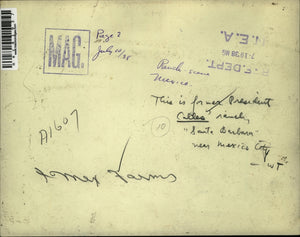 MAG.
Page 2
July 10/38
N.E.A.
7-19 38 NG
F.S. DEPT.
Ranch scene
Mexico.
This is former President
Calles ranch,
"Santa Barbara"
near Mexico City
A1607
10
Farms